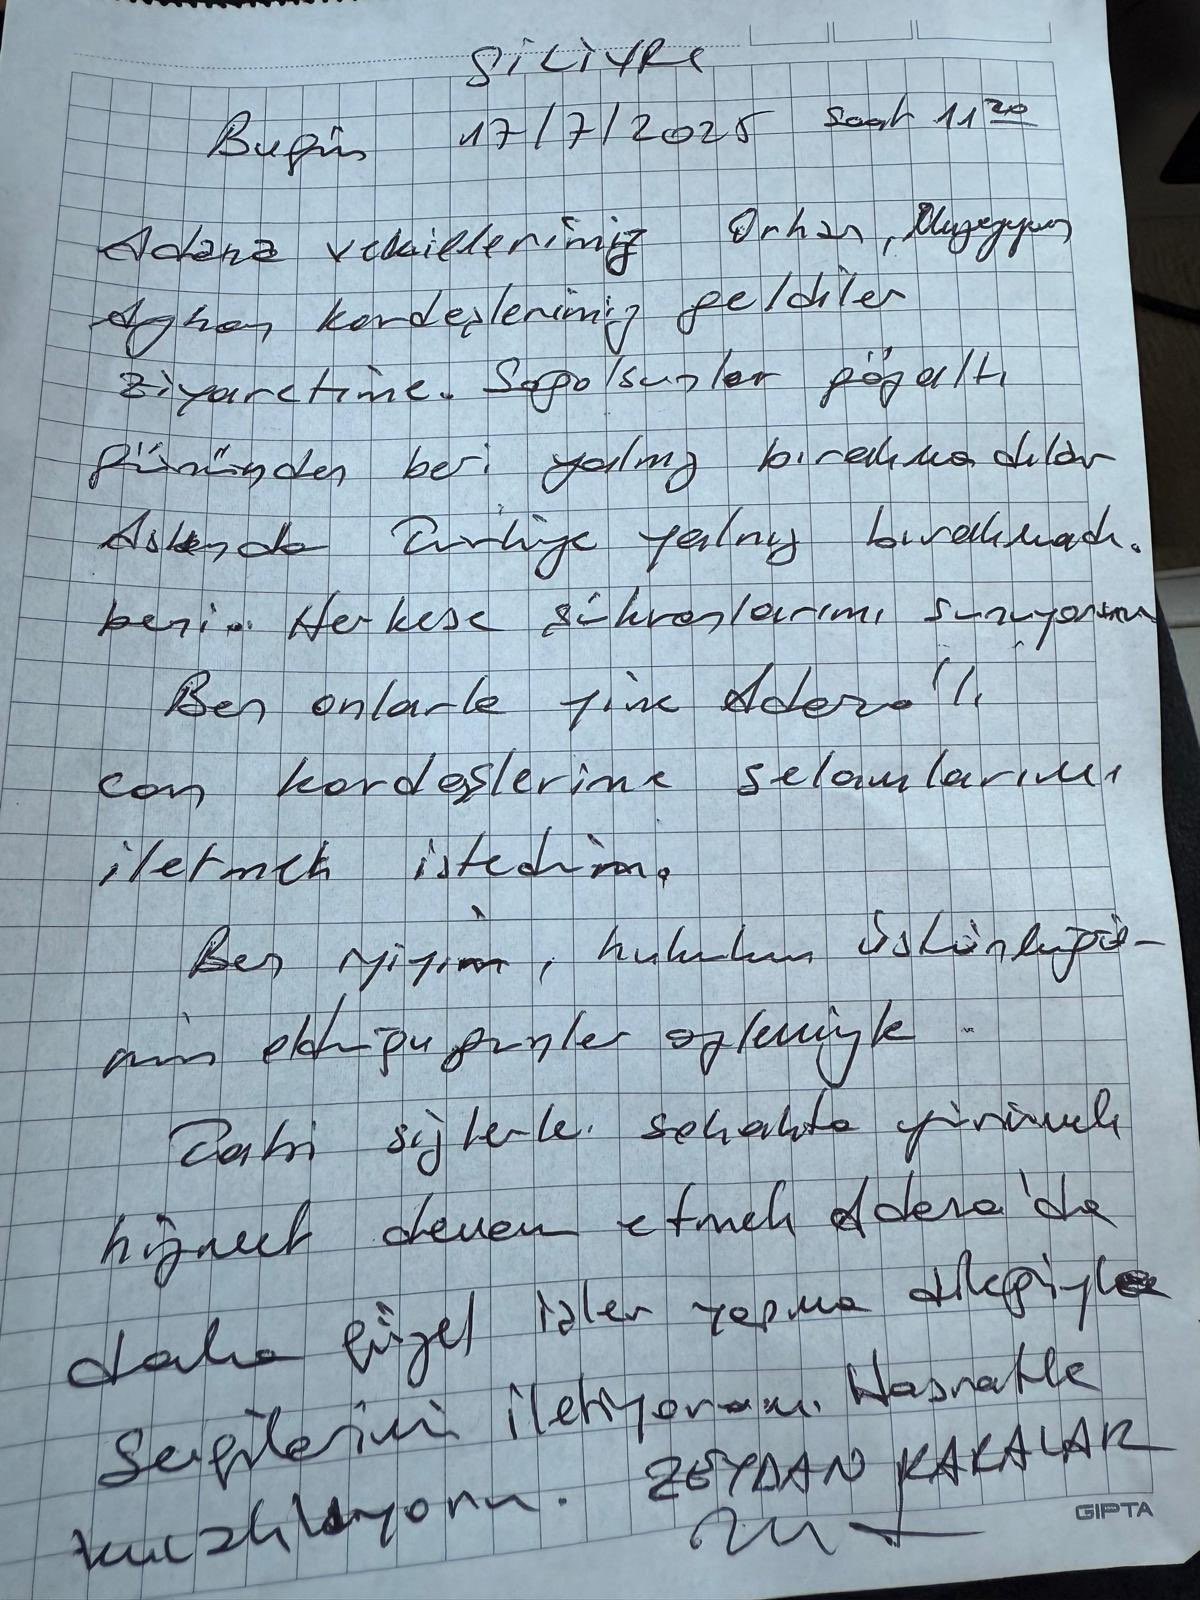 SİLİVRİ
Bugün 17/7/2025 saat 11 20
Adana vekillerimiz Orhan, Müzeyyen
Ayhan kardeşlerimiz geldiler
ziyaretime. Sağolsunlar gözaltı
gününden beri yalnız bırakmadılar
Aslında Türkiye yalnız bırakmadı.
beni. Herkese şükranlarımı sunuyorum
Ben onlarla yine Adana'lı
can kardeşlerime selamlarımı
iletmek istedim.
Ben iyiyim, hukukun üstünlüğü-
nün günler özlemiyle
Tabi sizlerle sokakta yürümek
hizmet devam etmek Adana'da
daha güzel işler yapma dileğiyle
Sevgilerimi iletiyorum. Hasretle
kucaklıyorum. ZEYDAN KARALAR
GIPTA